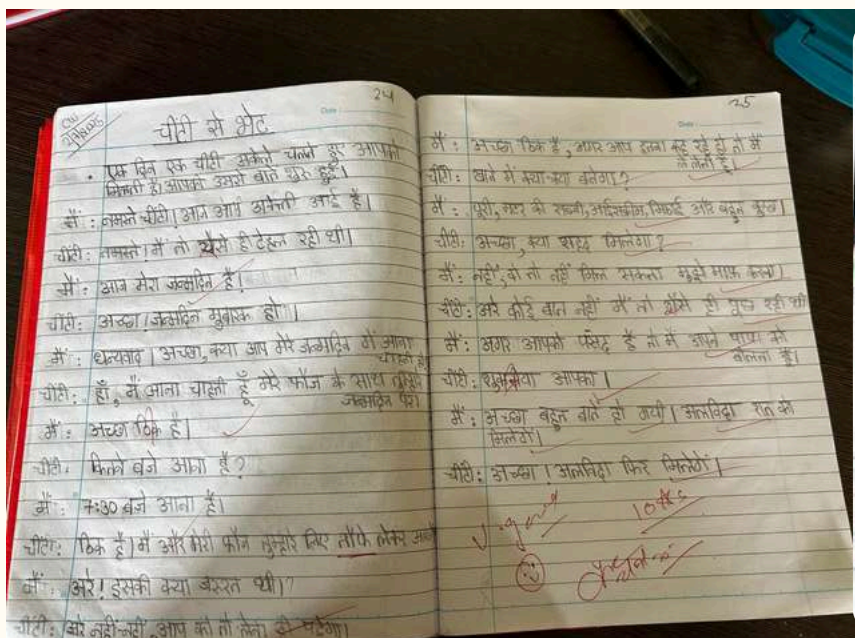 24
CW
Date:
चींटी से भेट
• एक दिन एक चींटी अकेले चलते हुए आपको
मिलती है। आपकी उससे बातें शुरू हुई।
मैं: नमस्ते चींटी! आज आप अकेली आई है।
चींटी: नमस्ते! मैं तो ऐसे ही टेहल रही थी।
मैं: आज मेरा जन्मदिन है!
चींटी: अच्छा! जन्मदिन मुबारक हो।
मैं: धन्यवाद। अच्छा, क्या आप मेरे जन्मदिन में आना
चाहती हो
चींटी: हाँ, मैं आना चाहती हूँ मेरे फौज के साथ तुम्हारे
जन्मदिन पर।
मैं: अच्छा ठिक है।
चींटी: कितने बजे आना है?
मैं: 7:30 बजे आना है।
चींटी: ठिक है। मैं और मेरी फौज तुम्हारे लिए तौफे लेकर
मैं: अरे! इसकी क्या जरूरत थी।?
चींटी: अरे नहीं-नहीं, आप को तो लेना ही पड़ेगा।
25
Date:
मैं: अच्छा ठिक है, अगर आप इतना कह रहे हो तो मैं
ले लेती हूँ।
चींटी: खाने में क्या-क्या बनेगा?
मैं: पूरी, मटर की सब्जी, आईसक्रीम, मिठाई और बहुत कुछ।
चींटी: अच्छा, क्या शहद मिलेगा?
मैं: नहीं, वो तो नहीं मिल सकता मुझे माफ़ करना।
चींटी: अरे कोई बात नहीं मैं तो ऐसे ही पूछ रही थी
मैं: अगर आपको पसंद है तो मैं अपने पापा को
बोलती हूँ।
चींटी: शुक्रिया आपका।
मैं: अच्छा बहुत बातें हो गयी। अलविदा रात को
मिलेगें।
चींटी: अच्छा! अलविदा फिर मिलेगें।